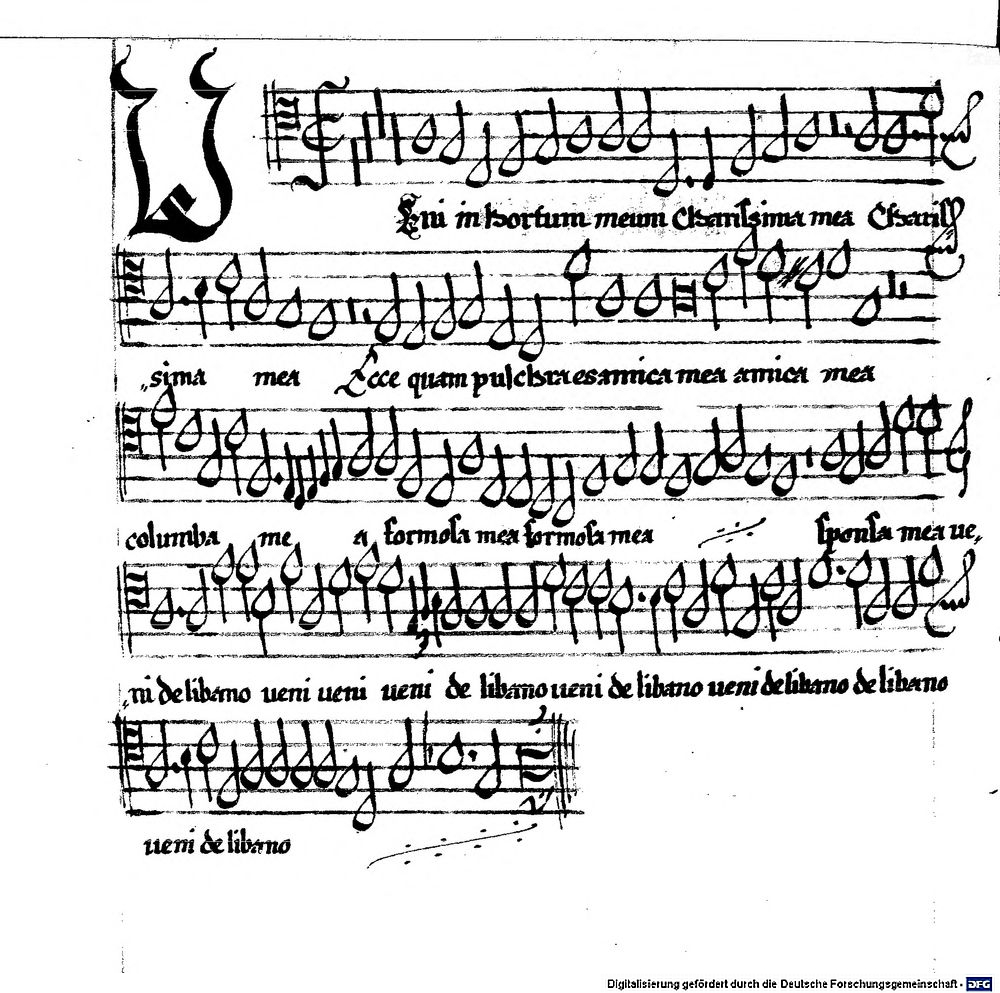 VEni in hortum meum Charissima mea Chariss
„sima mea Ecce quam pulchra es amica mea amica mea
columba me a formosa mea formosa mea sponsa mea ue„
„ni de libano ueni ueni ueni de libano ueni de libano ueni de libano de libano
ueni de libano
Digitalisierung gefördert durch die Deutsche Forschungsgemeinschaft - DFG